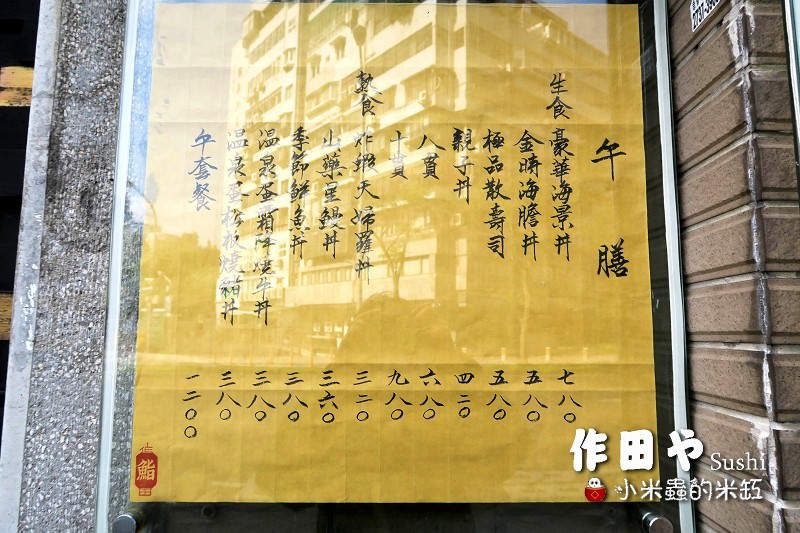 午膳
生食 豪華海景丼 七八〇
金時海膽丼 五八〇
極品散壽司 五八〇
親子丼 四二〇
八貫 六八〇
十貫 九八〇
熟食 炸蝦天婦羅丼 三二〇
山藥星鰻丼 三六〇
季節鮮魚丼 三八〇
溫泉蛋霜降燒牛丼 三八〇
溫泉蛋松板燒豬丼 三八〇
午套餐 一二〇〇
作
鮨
田
作田や Sushi
小米蟲的米缸